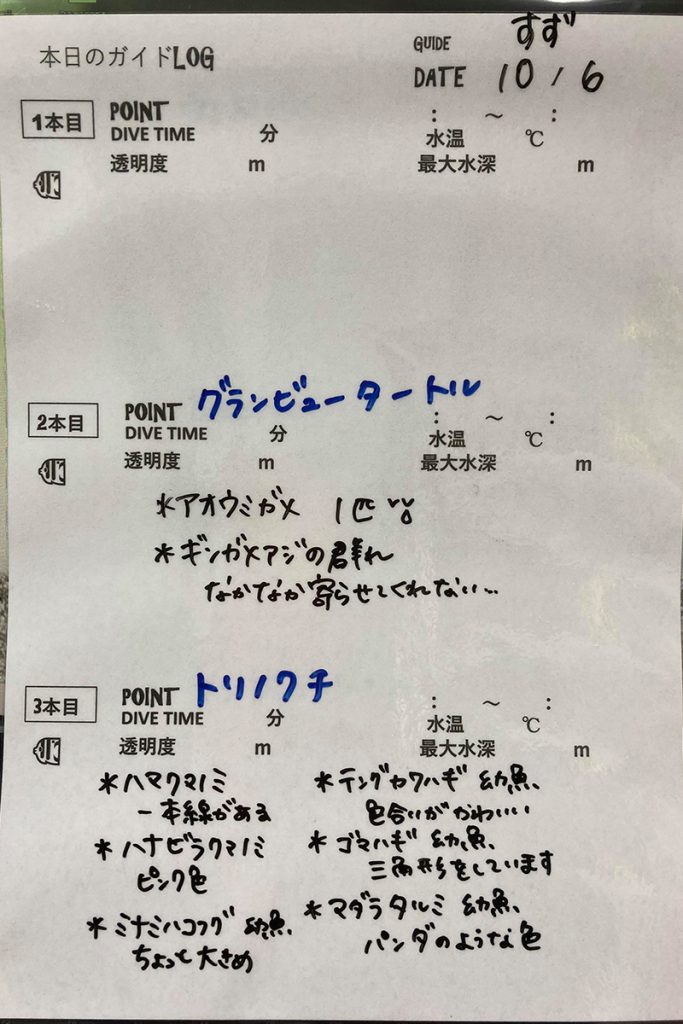 本日のガイドLOG
GUIDE すず
DATE 10 / 6
1本目 POINT : ～ :
DIVE TIME 分 水温 ℃
透明度 m 最大水深 m
2本目 POINT グランビュータートル : ～ :
DIVE TIME 分 水温 ℃
透明度 m 最大水深 m
*アオウミガメ 1匹
*ギンガメアジの群れ
なかなか寄らせてくれない…
3本目 POINT トリノクチ : ～ :
DIVE TIME 分 水温 ℃
透明度 m 最大水深 m
*ハマクマノミ
一本線がある
*ハナビラクマノミ
ピンク色
*ミナミハコフグ 幼魚、
ちょっと大きめ
*テングカワハギ 幼魚、
色合いがかわいい
*ゴマハギ 幼魚、
三角形をしています
*マダラタルミ 幼魚、
パンダのような色